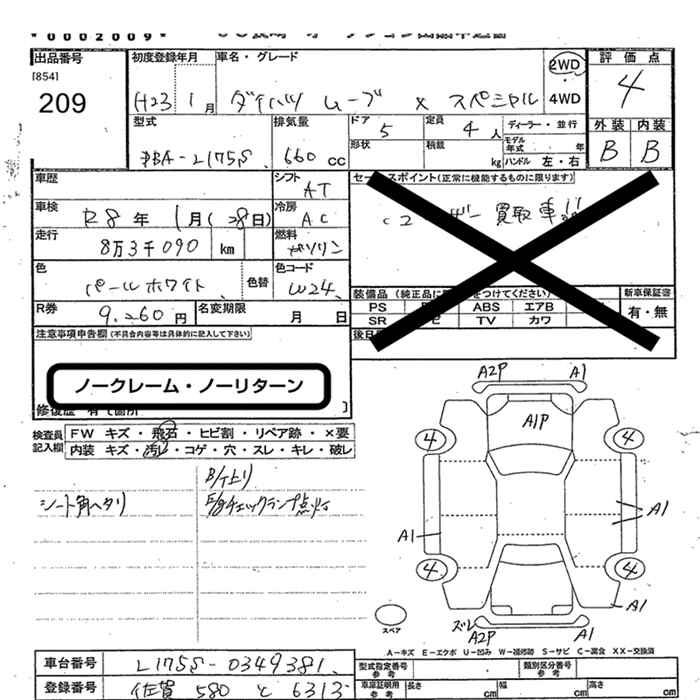 *0002009*
出品番号
[854]
209
初度登録年月 車名・グレード
H23 1月 ダイハツ ムーブ X スペシャル
2WD
4WD
評価点
4
外装 内装
B B
型式 排気量 ドア 定員 ディーラー・並行
DBA-L175S 660cc 5 4人
形状 積載 kg モデル年式 年
ハンドル 左・右
車歴 シフト AT
車検 R8年 1月(28日) 冷房 AC
走行 8万3千090 km 燃料 ガソリン
色 パールホワイト 色替 色コード W24
R券 9,260円 名変期限 月 日
セールスポイント(正常に機能するものに限ります)
買取車!!
装備品 新車保証書
PS ABS エアB 有・無
SR TV カワ
注意事項申告欄(不具合内容等は具体的に記入して下さい)
ノークレーム・ノーリターン
検査員記入欄
FW キズ・飛石・ヒビ割・リペア跡・×要
内装 キズ・汚れ・コゲ・穴・スレ・キレ・破レ
シート角ヘタリ
E/gチェックランプ点灯
A2P A1
A1P
4 4
A1 A1
4 4
A1
ズレ
A2P A1
スペア
A-キズ E-エクボ U-凹み W-補修跡 S-サビ C-腐食 XX-交換済
車台番号 L175S-0349381
登録番号 佐賀 580 と 6313
型式指定番号 参考 類別区分番号 参考
車庫証明用 参考 長さ cm 幅 cm 高さ cm